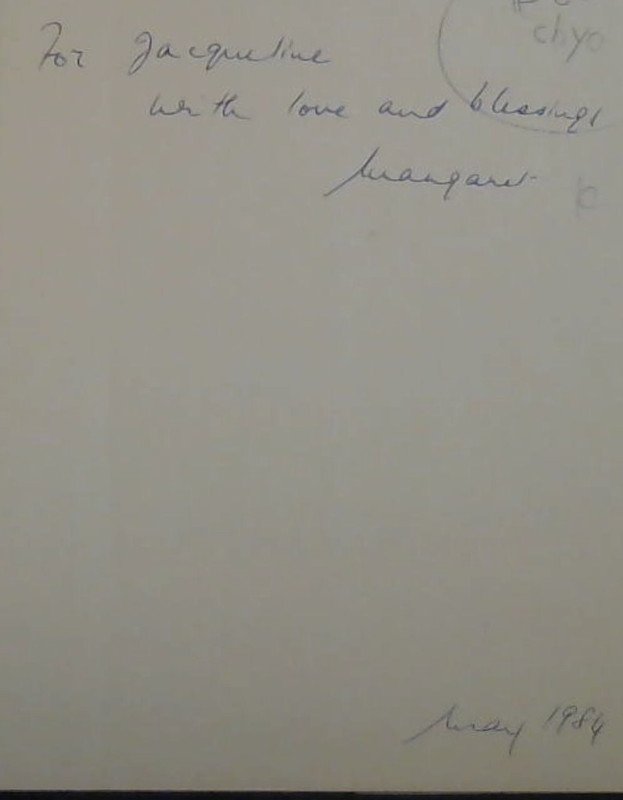 chyo
For Jacqueline
with love and blessings
Margaret
May 1984